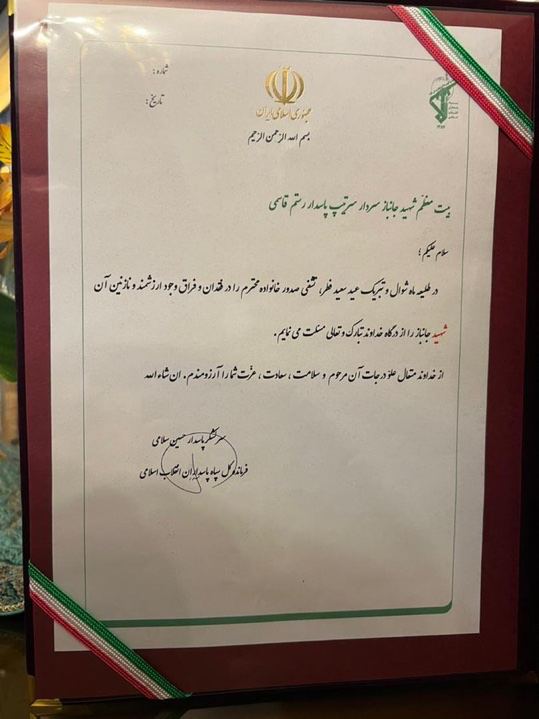 شماره:
تاریخ:
جمهوری اسلامی ایران
بسم الله الرحمن الرحیم
بیت معظّم شهید جانباز سردار سرتیپ پاسدار رستم قاسمی
سلام علیکم؛
در طلیعه ماه شوال و تبریک عید سعید فطر، تشفی صدور خانواده محترم را در فقدان و فراق وجود ارزشمند و نازنین آن
شهید جانباز را از درگاه خداوند تبارک و تعالی مسئلت می نمایم.
از خداوند متعال علوّ درجات آن مرحوم و سلامت، سعادت، عزّت شما را آرزومندم. ان شاء الله
سرلشکر پاسدار حسین سلامی
فرمانده کل سپاه پاسداران انقلاب اسلامی